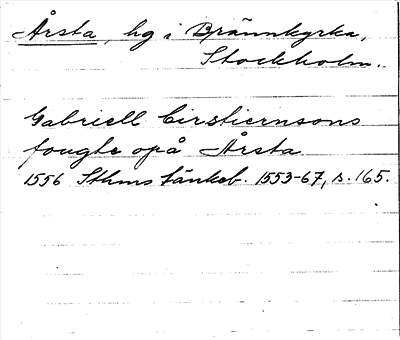 Årsta, hg i Brännkyrka,
Stockholm.
Gabriell Cirstiernsons
fougte opå Årsta
1556 Sthms tänkeb. 1553-67, s. 165.